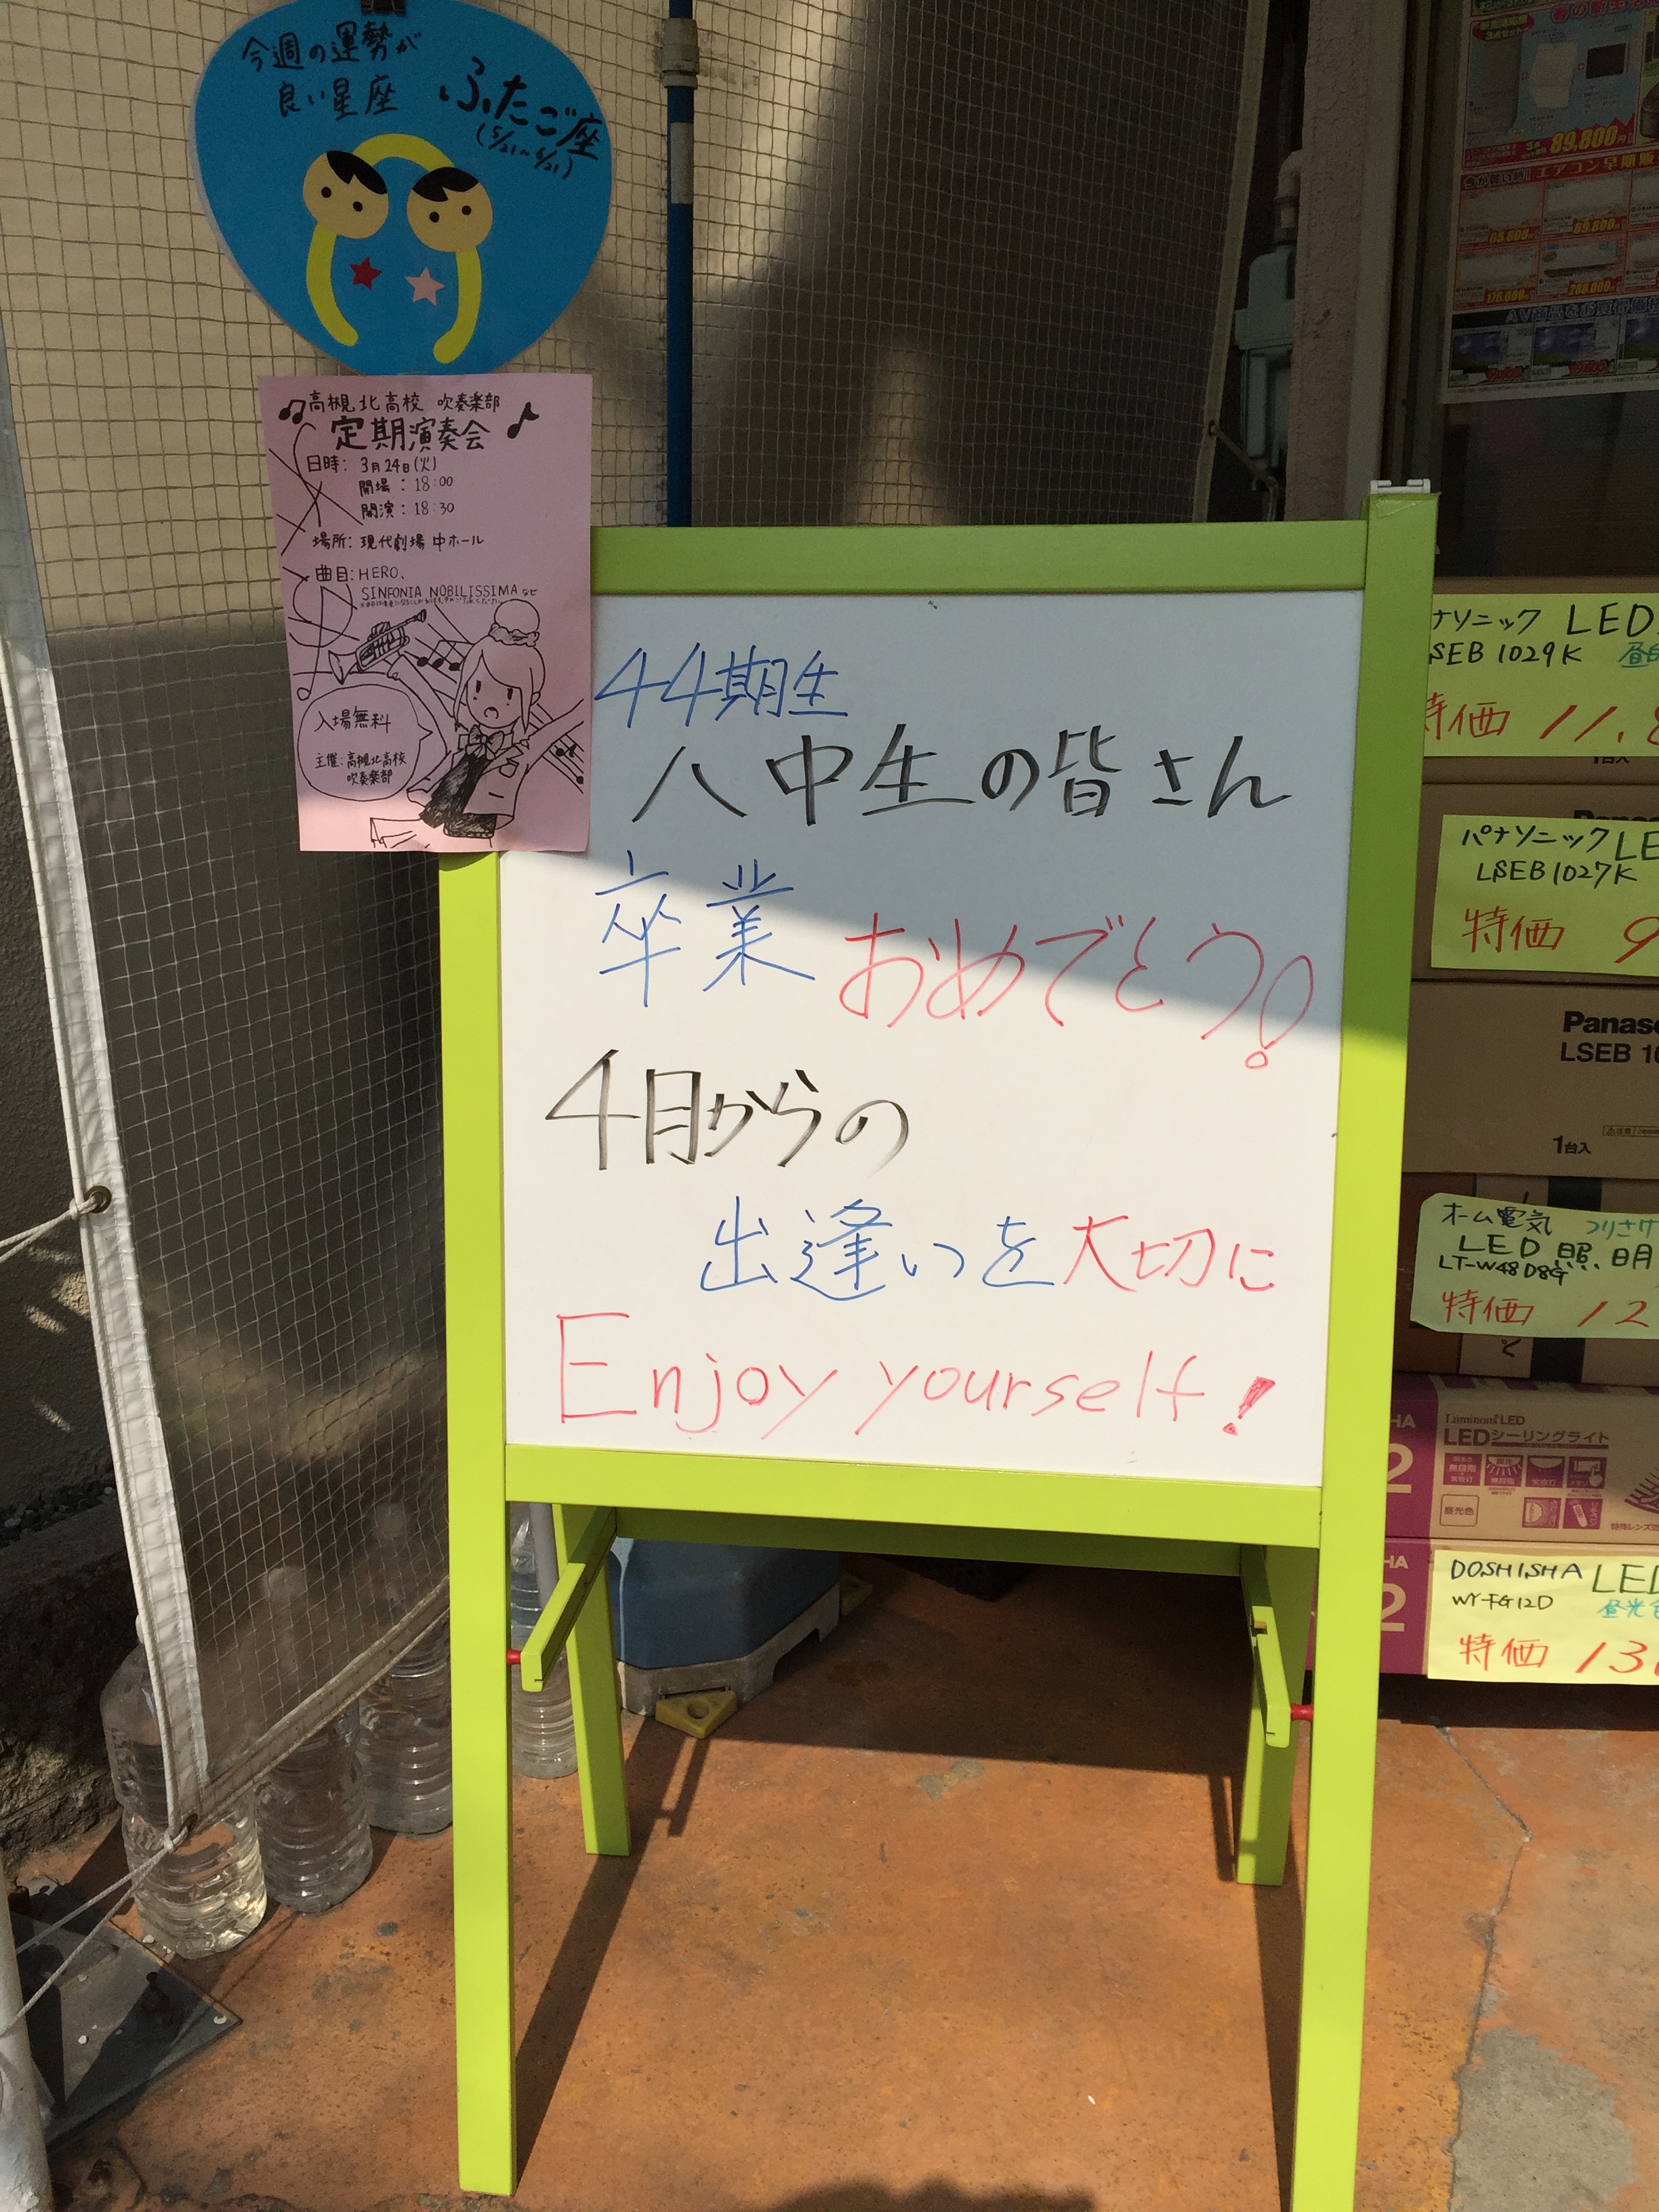 今週の運勢が
良い星座
ふたご座
(5/21~6/21)
高槻北高校 吹奏楽部
定期演奏会
日時: 3月24日(火)
開場: 18:00
開演: 18:30
場所: 現代劇場 中ホール
曲目: HERO、
SINFONIA NOBILISSIMA など
入場無料
主催: 高槻北高校
吹奏楽部
44期生
八中生の皆さん
卒業おめでとう!
4月からの
出逢いを大切に
Enjoy yourself!
89,800
エアコン早期
69,800
176,000
ナソニック LED
SEB 1029K
特価 11,8
1台入
パナソニック LE
LSEB 1027K
特価 9
Panaso
LSEB 10
1台入
ホーム電気 つりさげ
LED照明
LT-W48D8G
特価 12
Luminous LED
LEDシーリングライト
昼光色
HA
2
DOSHISHA LED
WY-FG12D 昼光色
特価 13
HA
2